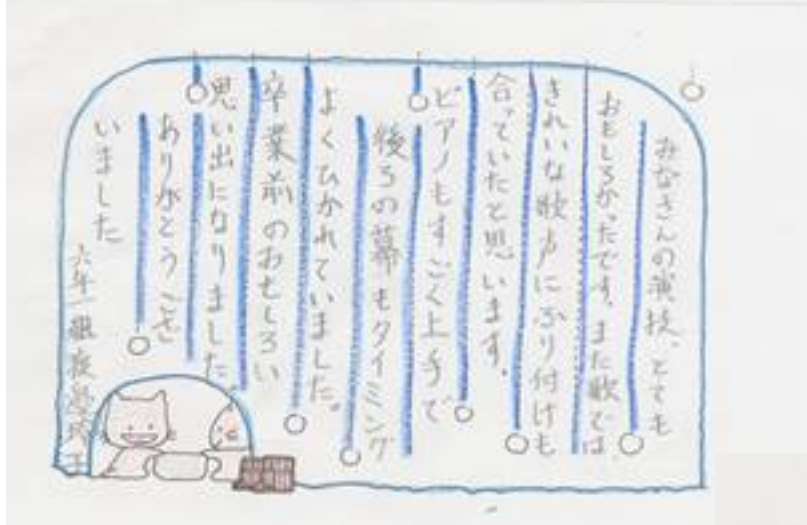 みなさんの演技、とても
おもしろかったです。また歌では
きれいな歌声にふり付けも
合っていたと思います。
ピアノもすごく上手で
後ろの幕もタイミング
よくひかれていました。
卒業前のおもしろい
思い出になりました。
ありがとうござ
いました
六年一組